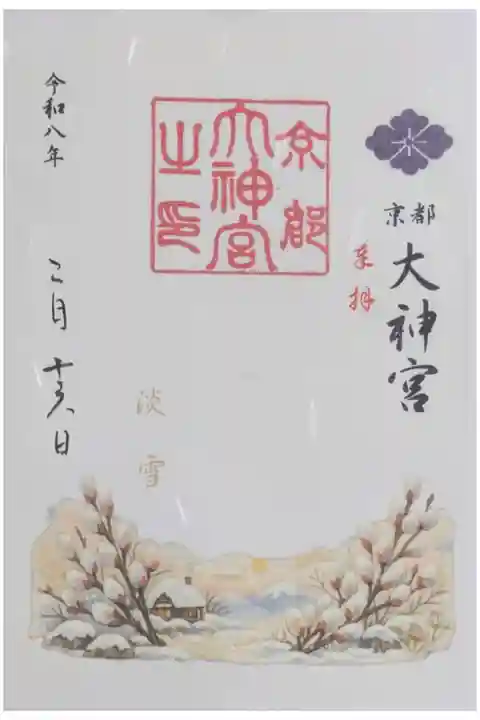 京都
大神宮
奉拝
京都
大神宮
之印
淡雪
令和八年
二月十六日